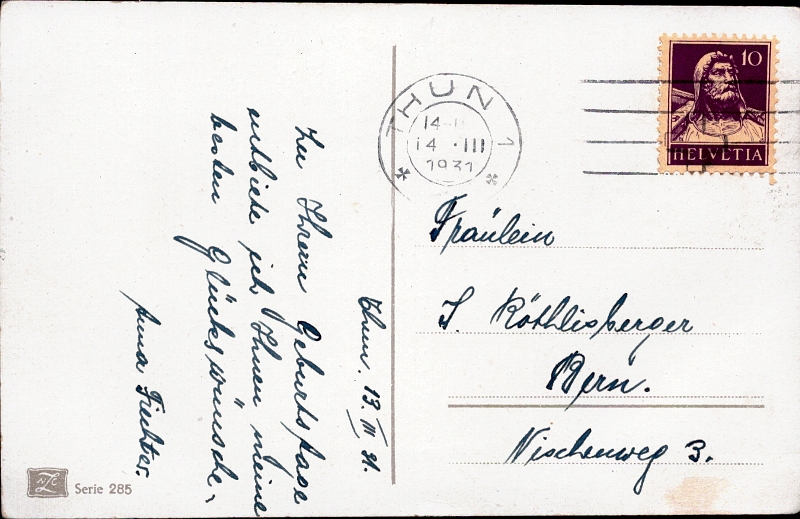 Thun. 13. III 31.
Zu Ihrem Geburtstage
entbiete ich Ihnen meine
besten Glückswünsche,
Anna Fiechter.
THUN 1
14 III
1931
10
HELVETIA
Fräulein
J. Röthlisberger
Bern.
Nischenweg 3.
Serie 285